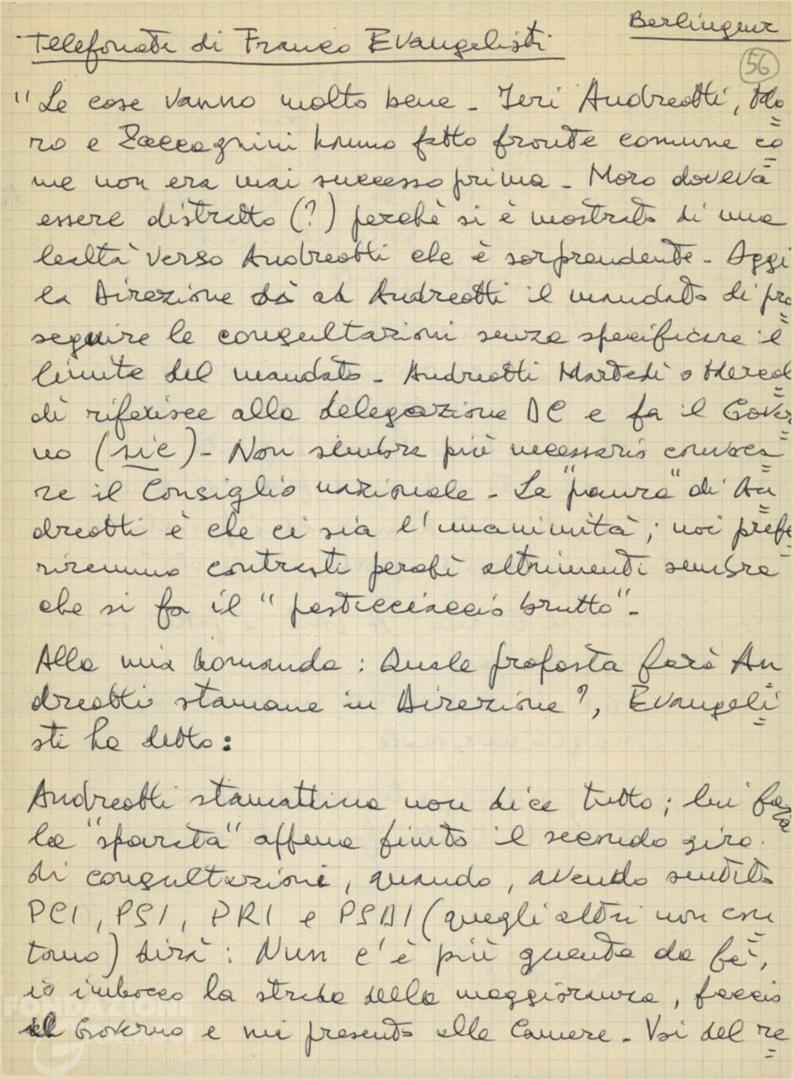 Berlinguer
Telefonata di Franco Evangelisti
56
"Le cose vanno molto bene - Ieri Andreotti, Mo=
ro e Zaccagnini hanno fatto fronte comune co=
me non era mai successo prima - Moro doveva
essere distratto (?) perché si è mostrato di una
lealtà verso Andreotti che è sorprendente - Oggi
la Direzione dà ad Andreotti il mandato di pro=
seguire le consultazioni senza specificare il
limite del mandato - Andreotti Martedì o Mercol=
dì riferisce alla delegazione DC e fa il Gover=
no (sic) - Non sembra più necessario convoca=
re il Consiglio nazionale - La "paura" di An=
dreotti è che ci sia l'unanimità; noi prefe=
riremmo contrasti perché altrimenti sembra
che si fa il "pasticciaccio brutto" -
Alla mia domanda: Quale proposta farà An
dreotti stamane in Direzione?, Evangeli=
sti ha detto:
Andreotti stamattina non dice tutto; lui farà
la "sparata" appena finito il secondo giro
di consultazioni, quando, avendo sentito
PCI, PSI, PRI e PSDI (quegli altri non con=
tano) dirà: Nun c'è più gnente da fà,
io imbocco la strada della maggioranza, faccio
il Governo e mi presento alle Camere - Voi del re=
FONDAZIONE